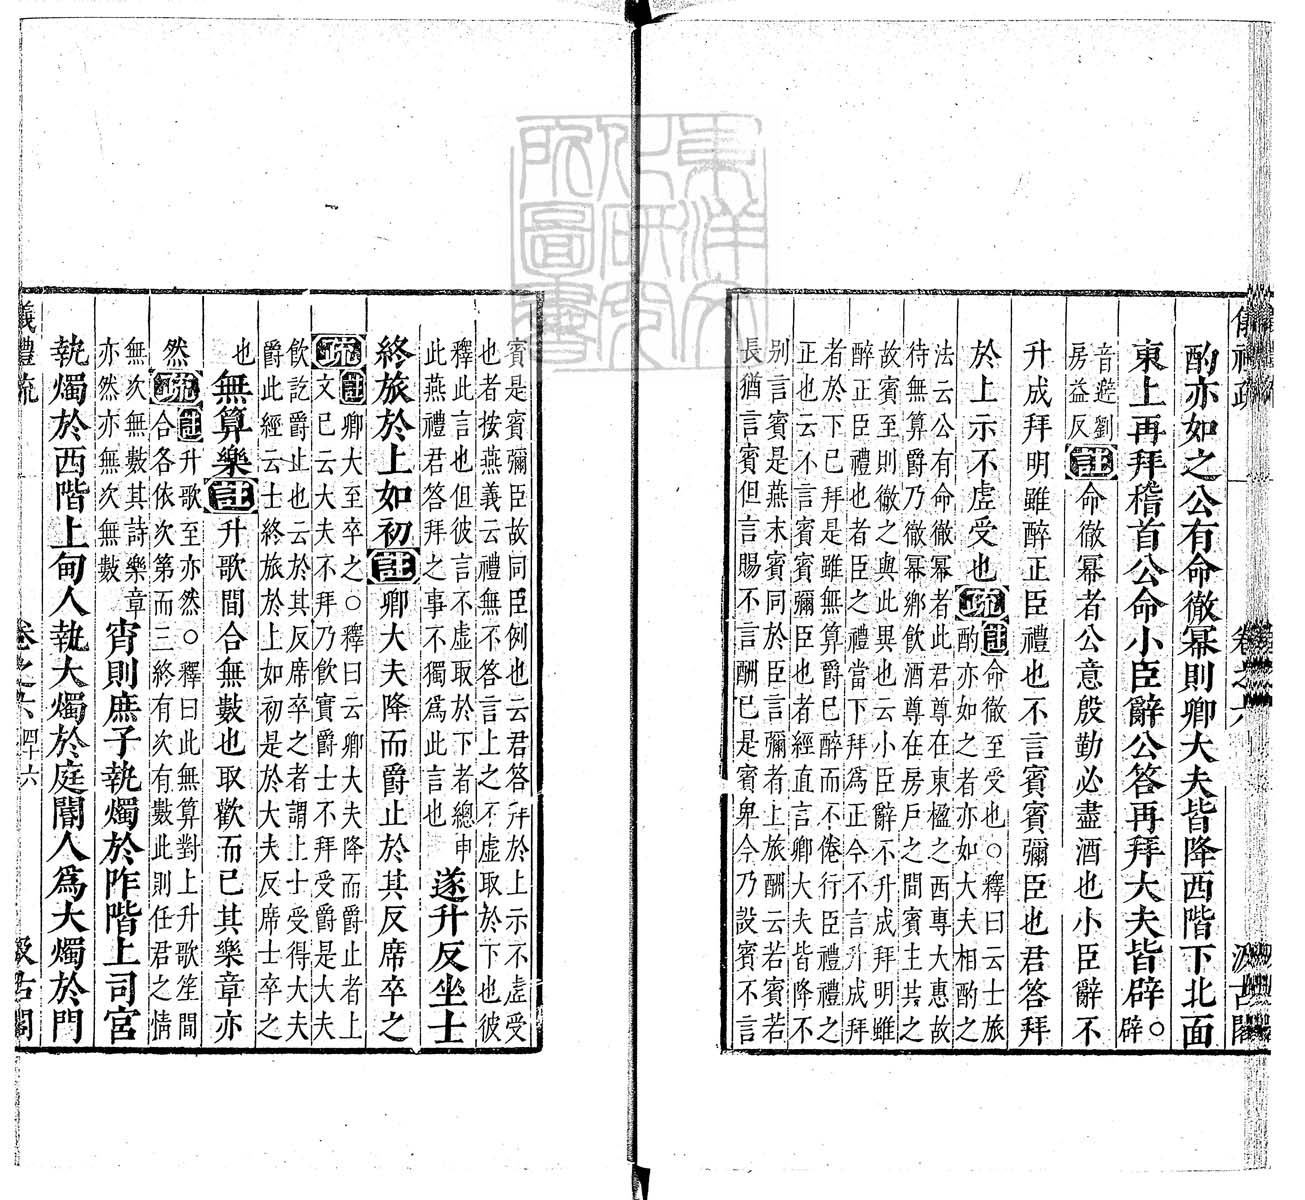 酌亦如之公有命徹冪則卿大夫皆降西階下北面
東上再拜稽首公命小臣辭公答再拜大夫皆辟○辟
音避劉
房益反
註命徹冪者公意殷勤必盡酒也小臣辭不
升成拜明雖醉正臣禮也不言賓賓彌臣也君答拜
於上示不虛受也疏註命徹至受也○釋曰云士旅
酌亦如之者亦如大夫相酌之
法云公有命徹冪者此君尊在東楹之西專大惠故
待無算爵乃徹冪鄉飲酒尊在房戶之間賓主共之
故賓至則徹之與此異也云小臣辭不升成拜明雖
醉正臣禮也者臣之禮當下拜爲正今不言升成拜
者於下已拜是雖無算爵已醉而不倦行臣禮之
正也云不言賓賓彌臣也者經直言卿大夫皆降不
別言賓是燕末賓同於臣言彌者上旅酬云若賓若
長猶言賓但言賜不言酬已是賓卑今乃設賓不言
賓是賓彌臣故同臣例也云君答拜於上示不虛受
也者按燕義云禮無不答言上之不虛取於下也彼
釋此言也但彼言不虛取於下者總申
此燕禮君答拜之事不獨爲此言也
遂升反坐士
終旅於上如初註卿大夫降而爵止於其反席卒之
疏註卿大至卒之○釋曰云卿大夫降而爵止者上
文已云大夫不拜乃飲實爵士不拜受爵是大夫
飲訖爵止也云於其反席卒之者謂上士受得大夫
爵此經云士終旅於上如初是於大夫反席士卒之
也無算樂註升歌間合無數也取歡而已其樂章亦
然疏註升歌至亦然○釋曰此無算對上升歌笙間
合各依次第而三終有次有數此則任君之情
無次無數其詩樂章
亦然亦無次無數
宵則庶子執燭於阼階上司宮
執燭於西階上甸人執大燭於庭閽人爲大燭於門
儀禮疏
卷之六
四十六
汲古閣